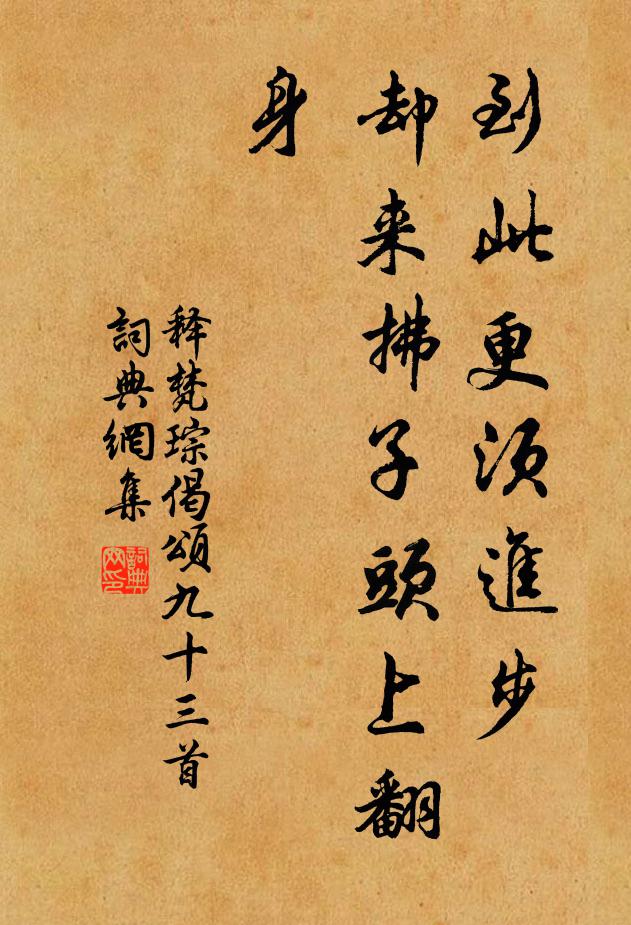 到此更须進步
却来拂子頭上翻
身
释梵琮偈頌九十三首
詞典網集
詞典网印